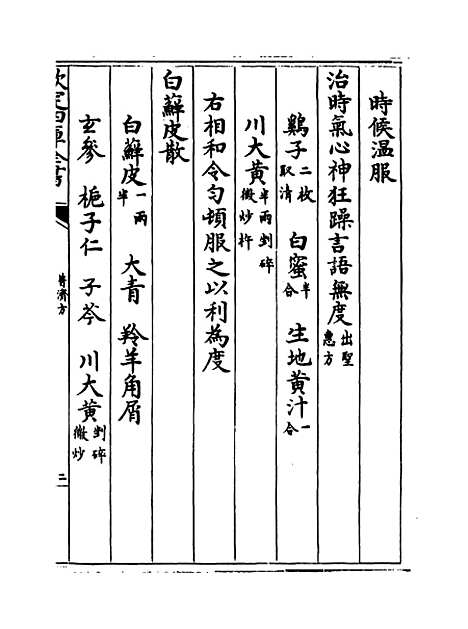 時候温服
治時氣心神狂躁言語無度出聖惠方
鷄子二枚取清 白蜜半合 生地黄汁一合
川大黄半兩剉碎微炒杵
右相和令匀頓服之以利為度
白蘚皮散
白蘚皮一兩半 大青 羚羊角屑
玄參 梔子仁 子芩 川大黄剉碎微炒
欽定四庫全書
普濟方
二